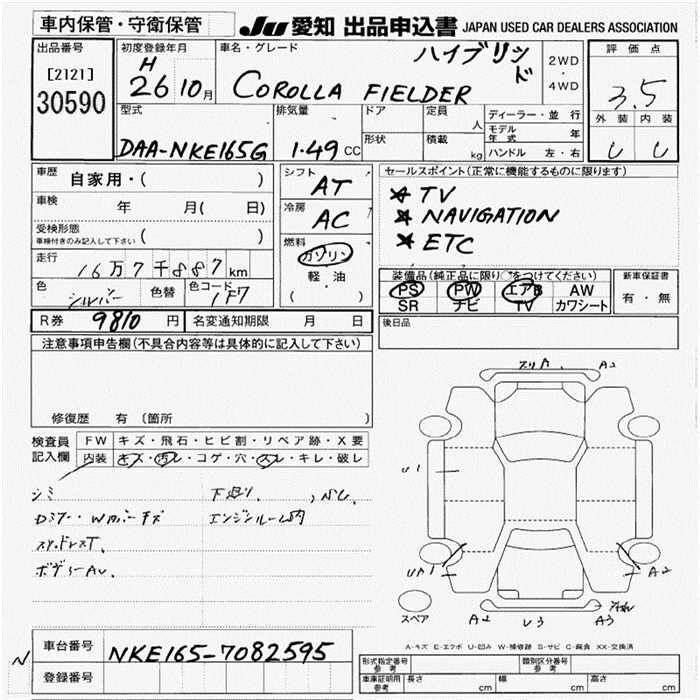 車内保管・守衛保管
JU 愛知 出品申込書 JAPAN USED CAR DEALERS ASSOCIATION
出品番号
[2121]
30590
初度登録年月
H 26 10月
車名・グレード
COROLLA FIELDER
ハイブリッド
2WD
・
4WD
評価点
3.5
外装 内装
型式
DAA-NKE165G
排気量
1.49 CC
ドア
形状
定員 人
積載 kg
ディーラー・並行
モデル年式 年
ハンドル 左・右
車歴 自家用・( )
車検 年 月( 日)
受検形態
車検付きのみ記入して下さい ( )
走行 16万7千887km
色 シルバー 色替 色コード 1F7
シフト AT
冷房 AC
燃料
ガソリン
軽・油
( )
セールスポイント(正常に機能するものに限ります)
TV
NAVIGATION
ETC
装備品(純正品に限り○をつけてください)
PS PW エアB AW
SR ナビ TV カワシート
新車保証書
有・無
R券 9810 円 名変通知期限 月 日
後日品
注意事項申告欄(不具合内容等は具体的に記入して下さい)
修復歴 有 (箇所 )
検査員記入欄
FW キズ・飛石・ヒビ割・リペア跡・X要
内装 キズ・汚レ・コゲ・穴・スレ・キレ・破レ
シミ
下廻り
エンジンルーム内
A2
U1
UA1
A2
スペア
A2
U3
A3
A-キズ E-エクボ U-凹み W-補修跡 S-サビ C-腐食 XX-交換済
車台番号 NKE165-7082595
N
登録番号
形式指定番号 参考
類別区分番号 参考
車庫証明用 参考
長さ cm 幅 cm 高さ cm